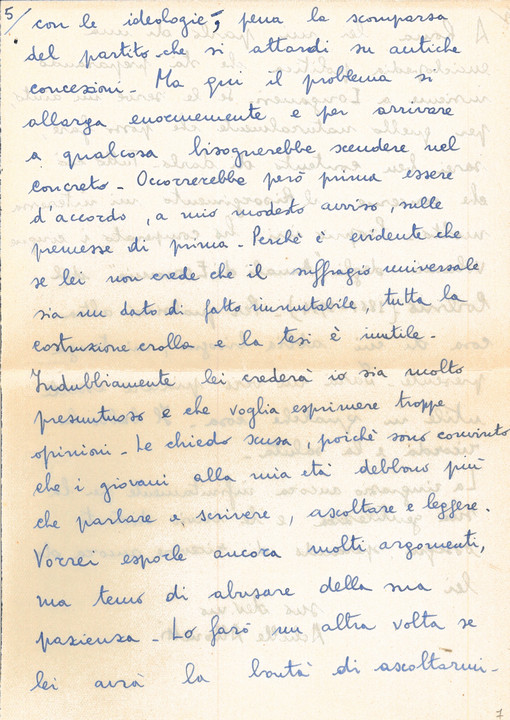 5/ con le ideologie, pena la scomparsa
del partito che si attardi su antiche
concezioni - Ma qui il problema si
allarga enormemente e per arrivare
a qualcosa bisognerebbe scendere nel
concreto - Occorrerebbe però prima essere
d'accordo, a mio modesto avviso, sulle
premesse di prima - Perchè è evidente che
se lei non crede che il suffragio universale
sia un dato di fatto immutabile, tutta la
costruzione crolla e la tesi è inutile -
Indubbiamente lei crederà io sia molto
presuntuoso e che voglia esprimere troppe
opinioni - Le chiedo scusa, poichè sono convinto
che i giovani alla mia età debbono più
che parlare e scrivere, ascoltare e leggere.
Vorrei esporle ancora molti argomenti,
ma temo di abusare della sua
pazienza - Lo farò un altra volta se
lei avrà la bontà di ascoltarmi -
7